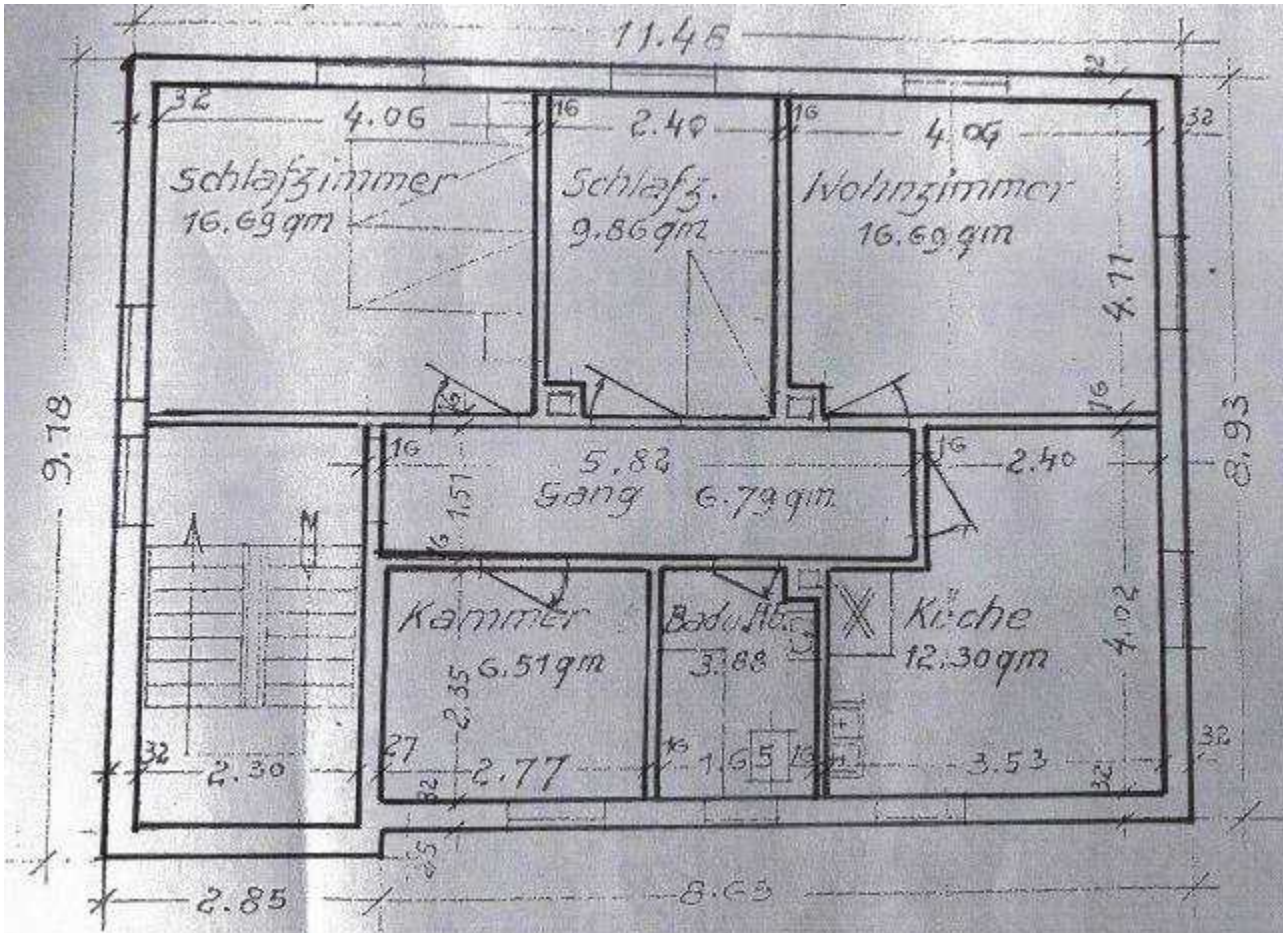 11.48
32
32
4.06
16
2.40
16
4.06
32
Schlafzimmer
16.69 qm
Schlafz.
9.86 qm
Wohnzimmer
16.69 qm
4.11
16
16
9.18
8.93
16
5.82
16
2.40
Gang 6.79 qm
1.51
16
Kammer
6.51 qm
2.35
Bad u. Ab.
3.88
Küche
12.30 qm
4.02
32
2.30
27
2.77
16
1.65
3.53
32
32
32
25
2.85
8.63